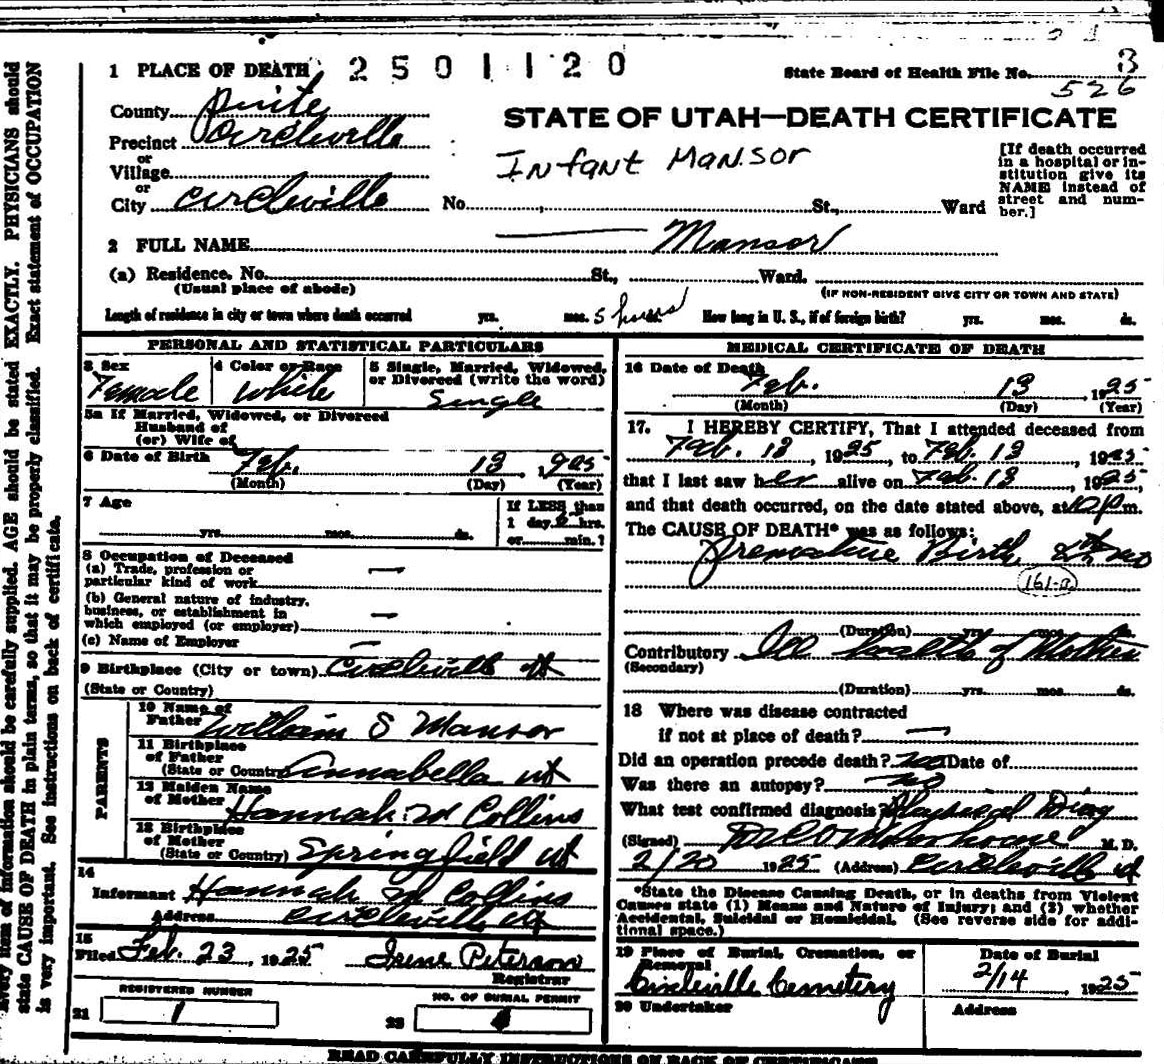 1 PLACE OF DEATH 2501120
State Board of Health File No. 3
526
County Piute
STATE OF UTAH—DEATH CERTIFICATE
Precinct Circleville
Infant Mansor
or
Village
or
City Circleville No. St., Ward
[If death occurred
in a hospital or in-
stitution give its
NAME instead of
street and num-
ber.]
2 FULL NAME Mansor
(a) Residence. No. St., Ward.
(Usual place of abode)
(IF NON-RESIDENT GIVE CITY OR TOWN AND STATE)
Length of residence in city or town where death occurred yrs. mos. 5 hours How long in U. S., if of foreign birth? yrs. mos. ds.
PERSONAL AND STATISTICAL PARTICULARS
3 Sex
Female
4 Color or Race
White
5 Single, Married, Widowed,
or Divorced (write the word)
Single
5a If Married, Widowed, or Divorced
Husband of
(or) Wife of
6 Date of Birth Feb. 13, 1925
(Month) (Day) (Year)
7 Age
yrs. mos. ds.
If LESS than
1 day, hrs.
or min.?
8 Occupation of Deceased
(a) Trade, profession or
particular kind of work —
(b) General nature of industry,
business, or establishment in
which employed (or employer) —
(c) Name of Employer —
9 Birthplace (City or town) Circleville Ut
(State or Country)
PARENTS
10 Name of
Father William S Mansor
11 Birthplace
of Father
(State or Country) Annabella Ut
12 Maiden Name
of Mother Hannah M Collins
13 Birthplace
of Mother
(State or Country) Springfield Ut
14
Informant Hannah M Collins
Address Circleville Ut
15
Filed Feb. 23, 1925 Irene Peterson
Registrar
REGISTERED NUMBER
21 1
NO. OF BURIAL PERMIT
22
MEDICAL CERTIFICATE OF DEATH
16 Date of Death
Feb. 13, 1925
(Month) (Day) (Year)
17. I HEREBY CERTIFY, That I attended deceased from
Feb. 13, 1925, to Feb. 13, 1925
that I last saw her alive on Feb. 13, 1925,
and that death occurred, on the date stated above, at 10 p m.
The CAUSE OF DEATH* was as follows:
Premature Birth mo
161-a
(Duration) yrs. mos. ds.
Contributory Ill health of Mother
(Secondary)
(Duration) yrs. mos. ds.
18 Where was disease contracted
if not at place of death? —
Did an operation precede death? no Date of
Was there an autopsy? no
What test confirmed diagnosis? Physical Diag
(Signed) M. D.
2/20 1925 (Address) Circleville Ut
*State the Disease Causing Death, or in deaths from Violent
Causes state (1) Means and Nature of Injury; and (2) whether
Accidental, Suicidal or Homicidal. (See reverse side for addi-
tional space.)
19 Place of Burial, Cremation, or
Removal
Circleville Cemetery
Date of Burial
2/14 1925
20 Undertaker
Address
READ CAREFULLY INSTRUCTIONS ON BACK OF CERTIFICATE
Every item of information should be carefully supplied. AGE should be stated EXACTLY. PHYSICIANS should
state CAUSE OF DEATH in plain terms, so that it may be properly classified. Exact statement of OCCUPATION
is very important. See instructions on back of certificate.